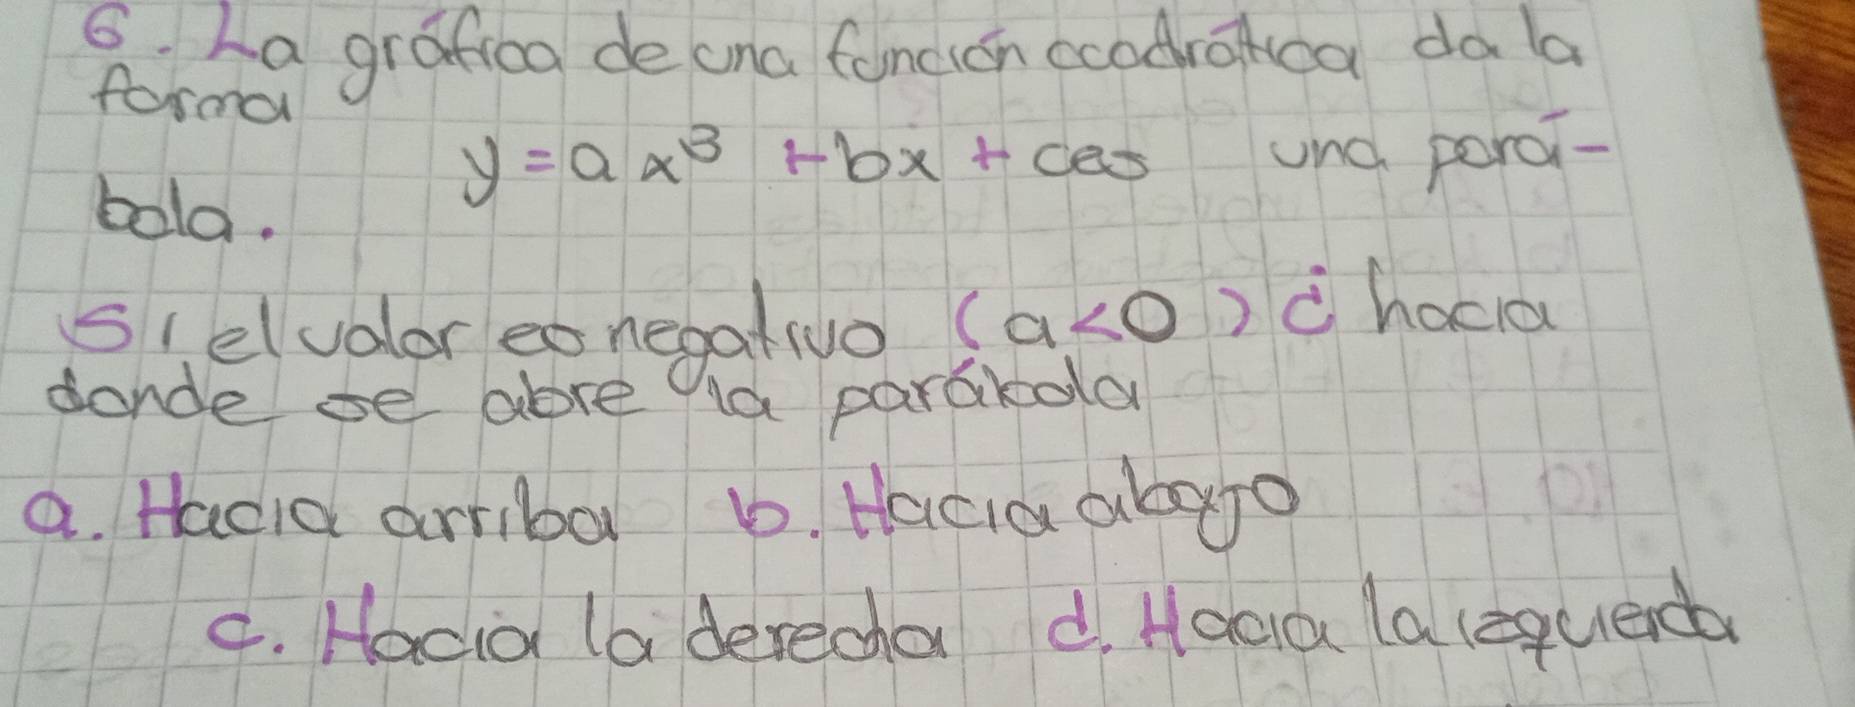 6. La gráfica de una función cuadrática da la
forma
y = a x³ + bx + c es una pará-
bola.
Si el valor es negativo (a < 0) ¿ hacia
donde se abre la parábola
a. Hacia arriba b. Hacia abajo
c. Hacia la derecha d. Hacia la izquierda